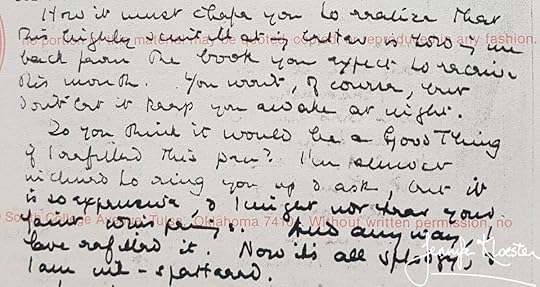 How it must chafe you to realize that
this highly scintillating letter is to
no portion of this material may be quoted, copied, or reproduced in any fashion.
back from the book you expect to receive
this month. You won't, of course, but
don't let it keep you awake at night.
So you think it would be a Good Thing
if I refilled this pen? I'm almost
inclined to ring you up & ask, but it
is so expensive & I might not hear your
South College Avenue, Tulsa, Oklahoma 7410 Without written permission, no
And anyway
have refilled it. Now it's all splodgy, &
I am ink-spattered.